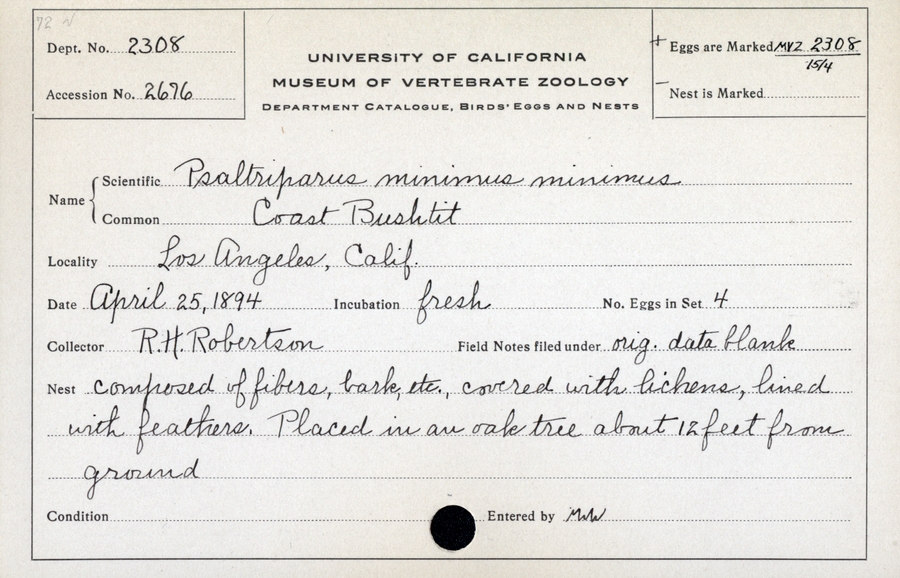 72 N
Dept. No. 2308
Accession No. 2676
UNIVERSITY OF CALIFORNIA
MUSEUM OF VERTEBRATE ZOOLOGY
DEPARTMENT CATALOGUE, BIRDS' EGGS AND NESTS
+ Eggs are Marked MVZ 2308
15/4
– Nest is Marked
Name { Scientific Psaltriparus minimus minimus
Common Coast Bushtit
Locality Los Angeles, Calif.
Date April 25, 1894 Incubation fresh No. Eggs in Set 4
Collector R.H. Robertson Field Notes filed under orig. data blank
Nest composed of fibers, bark, etc., covered with lichens, lined
with feathers. Placed in an oak tree about 12 feet from
ground
Condition Entered by